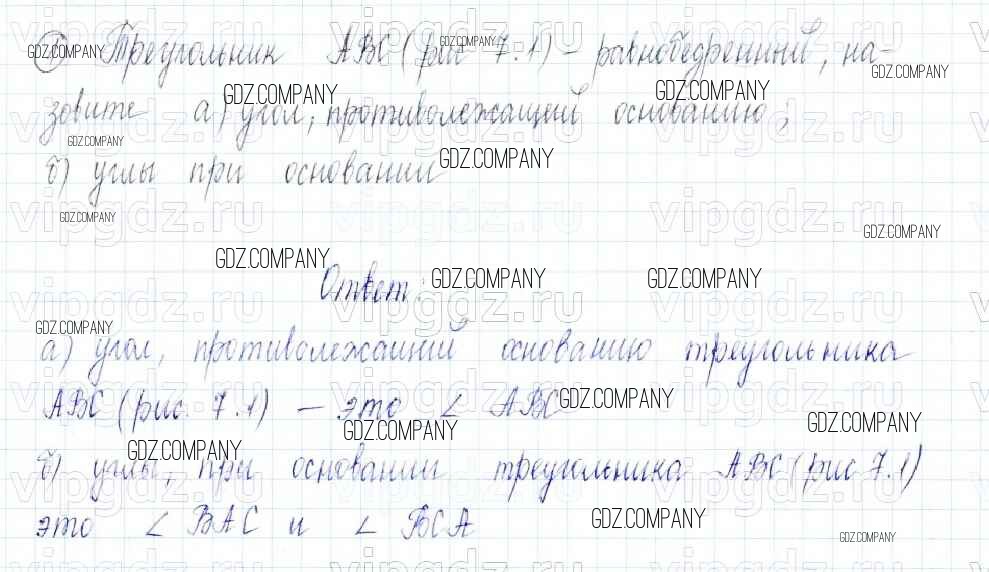 1) Треугольник АВС (рис 7.1) - равнобедренный, на-
зовите а) угол, противолежащий основанию;
б) углы при основании
Ответ:
а) угол, противолежащий основанию треугольника
АВС (рис. 7.1) — это ∠ АВС
б) углы, при основании треугольника АВС (рис 7.1)
это ∠ ВАС и ∠ ВСА
GDZ.COMPANY
vipgdz.ru